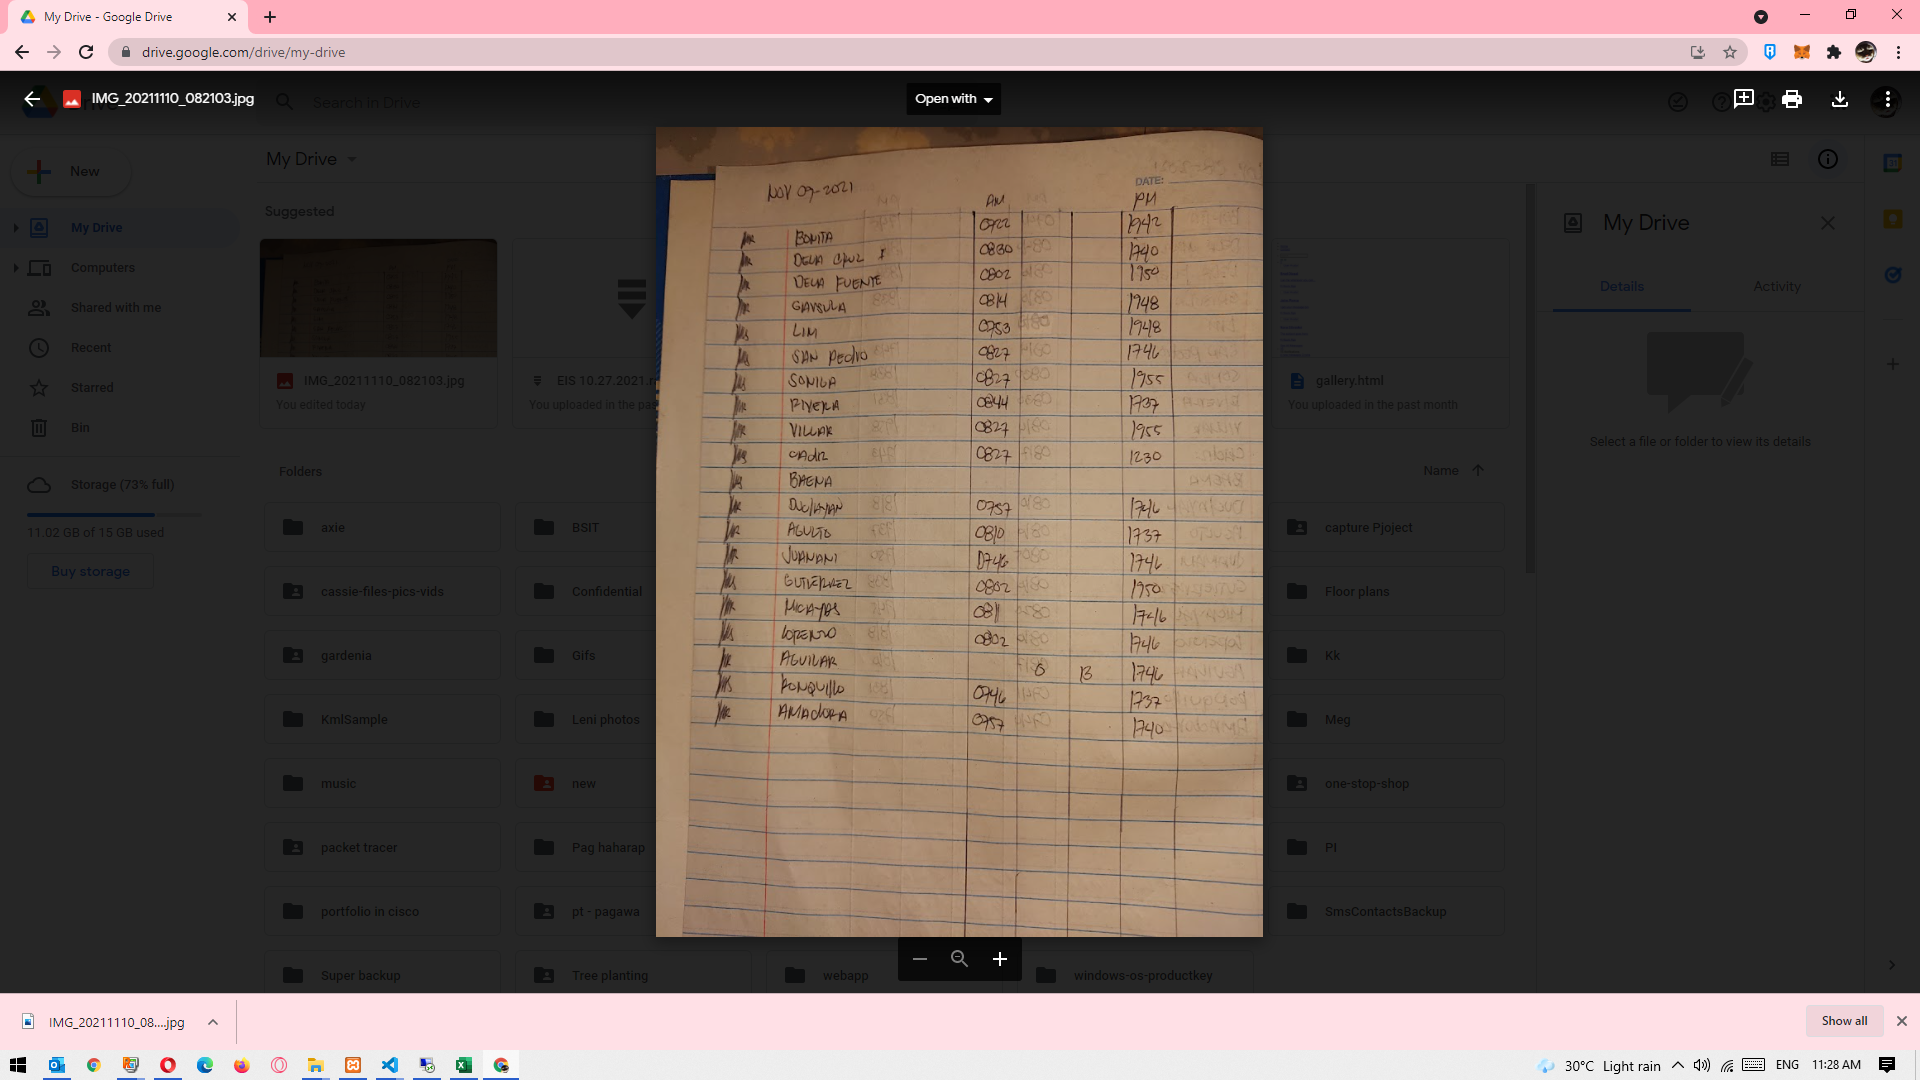 My Drive - Google Drive
drive.google.com/drive/my-drive
IMG_20211110_082103.jpg
Search in Drive
Open with
New
My Drive
Computers
Shared with me
Recent
Starred
Bin
Storage (73% full)
11.02 GB of 15 GB used
Buy storage
My Drive
Suggested
IMG_20211110_082103.jpg
You edited today
EIS 10.27.2021.r
You uploaded in the pas
gallery.html
You uploaded in the past month
Folders
Name
axie
BSIT
capture Pjoject
cassie-files-pics-vids
Confidential
Floor plans
gardenia
Gifs
Kk
KmlSample
Leni photos
Meg
music
new
one-stop-shop
packet tracer
Pag haharap
PI
portfolio in cisco
pt - pagawa
SmsContactsBackup
Super backup
Tree planting
webapp
windows-os-productkey
NOV 09-2021 AM DATE: PM
BONITA 0722 1942
DELA CRUZ 0830 1740
DELA FUENTE 0802 1950
0814 1948
LIM 0753 1948
SAN PEDRO 0827 1746
0827 1955
RIVERA 0844 1737
VILLAR 0827 1955
CADIZ 0827 1230
BAENA
0757 1746
AGULTO 0810 1737
JUANANI 0746 1746
GUTIERREZ 0802 1950
0811 1746
LORENZO 0802 1746
AGUILAR O B 1746
RONQUILLO 0746 1737
AMADORA 0757 1740
My Drive
Details
Activity
Select a file or folder to view its details
IMG_20211110_08....jpg
Show all
30°C Light rain
ENG
11:28 AM